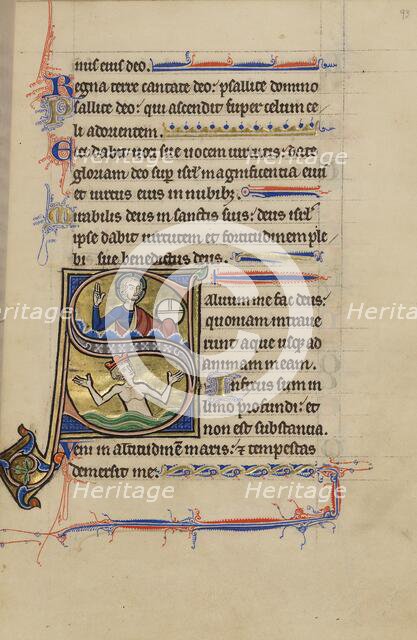 93
inis eius deo.
Regna terre cantate deo: psallite domino
psallite deo: qui ascendit super celum ce
li ad orientem.
Ecce dabit uoci sue uocem uirtutis: date
gloriam deo sup isrl magnificentia eius
et uirtus eius in nubibz
Mirabilis deus in sanctis suis: deus isrl
ipse dabit uirtutem et fortitudinem ple
bi sue benedictus deus.
Saluum me fac deus:
quoniam intraue
runt aque usqz ad
animam meam.
Infixus sum in
limo profundi: et
non est substancia.
Veni in altitudine maris: et tempestas
demersit me:
Heritage Heritage
Heritage
Images
Heritage Heritage